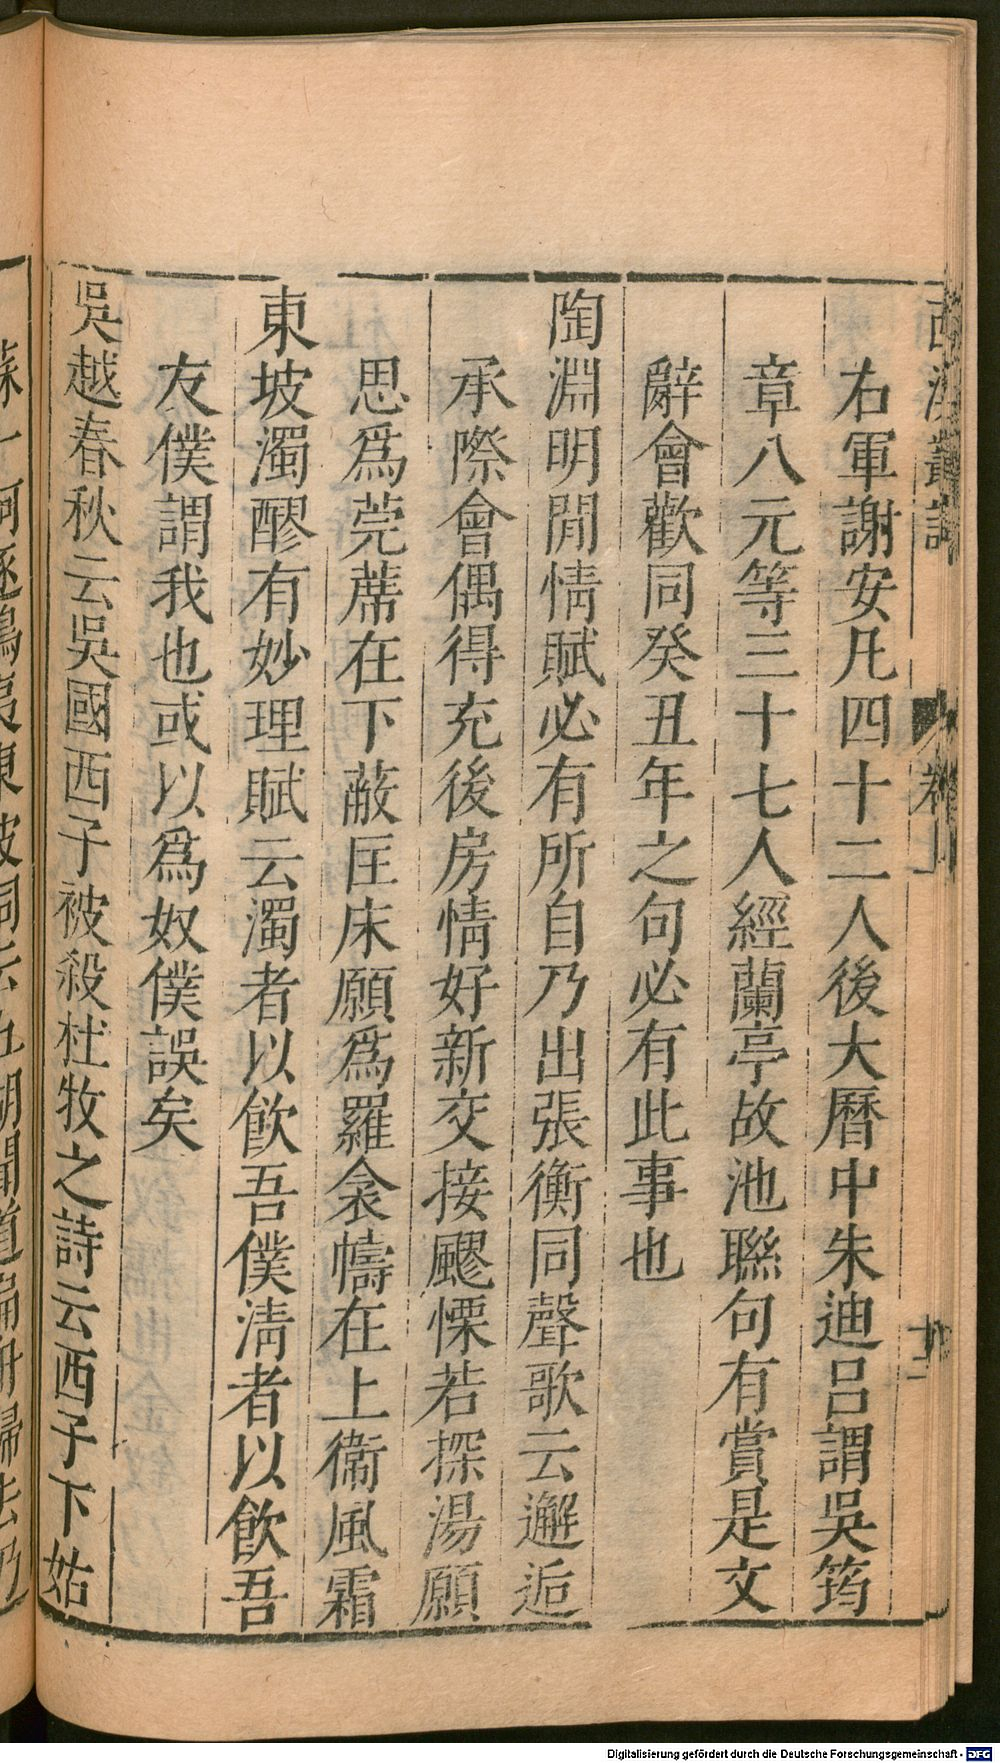 右軍謝安凡四十二人後大曆中朱迪呂謂吳筠
章八元等三十七人經蘭亭故池聯句有賞是文
辭會歡同癸丑年之句必有此事也
陶淵明閒情賦必有所自乃出張衡同聲歌云邂逅
承際會偶得充後房情好新交接飂慄若探湯願
思爲莞蓆在下蔽匡床願爲羅衾幬在上衞風霜
東坡濁醪有妙理賦云濁者以飲吾僕淸者以飲吾
友僕謂我也或以爲奴僕誤矣
吳越春秋云吳國西子被殺杜牧之詩云西子下姑
蘇一舸逐鴟夷東坡詞云五湖聞道扁舟歸去乃
Digitalisierung gefördert durch die Deutsche Forschungsgemeinschaft - DFG